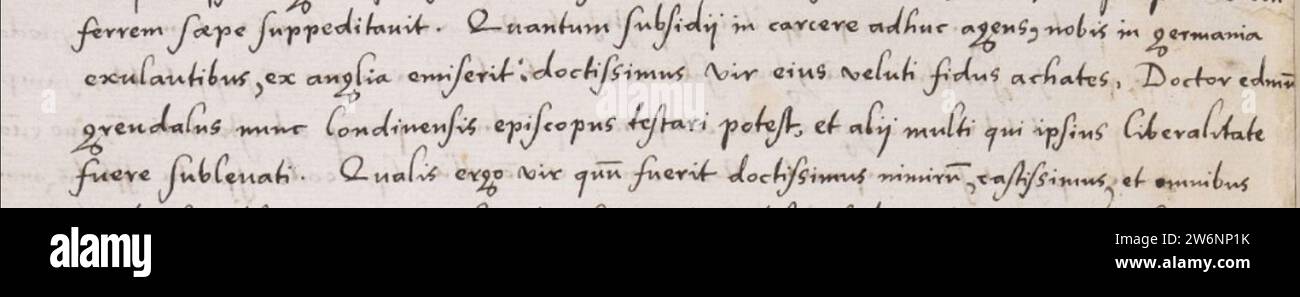 ferrem sæpe suppeditauit. Quantum subsidij in carcere adhuc agens, nobis in germania
exulantibus, ex anglia emiserit: doctissimus vir eius veluti fidus achates, Doctor edmū
grendalus nunc Londinensis episcopus testari potest, et alij multi qui ipsius liberalitate
fuere subleuati. Qualis ergo vir quū fuerit doctissimus nimirū, castissimus, et omnibus
a alamy a a
alamy
Image ID: W6NP1K
www.alamy.com